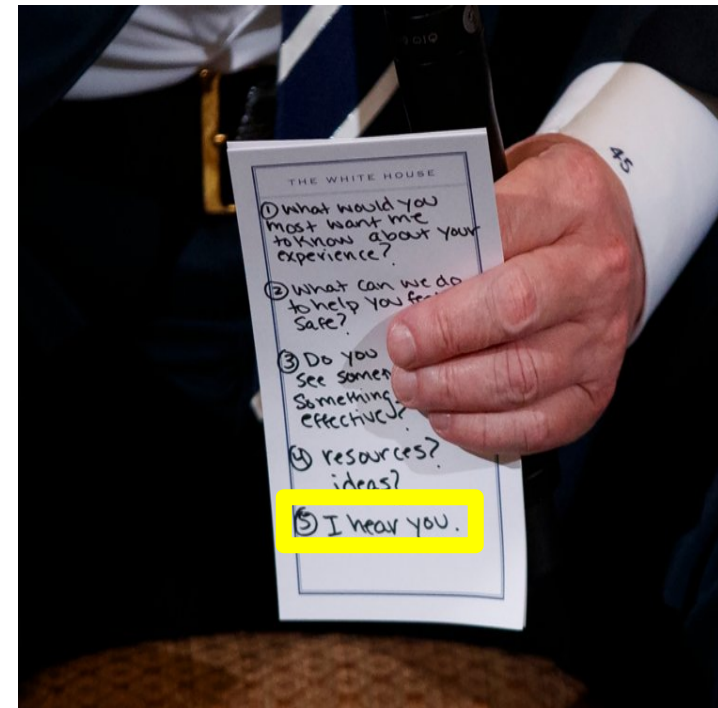 45
THE WHITE HOUSE
① What would you
most want me
to know about your
experience?
② What can we do
to help you
Safe?
③ Do you
see
Something
effective?
④ resources?
ideas?
⑤ I hear you.